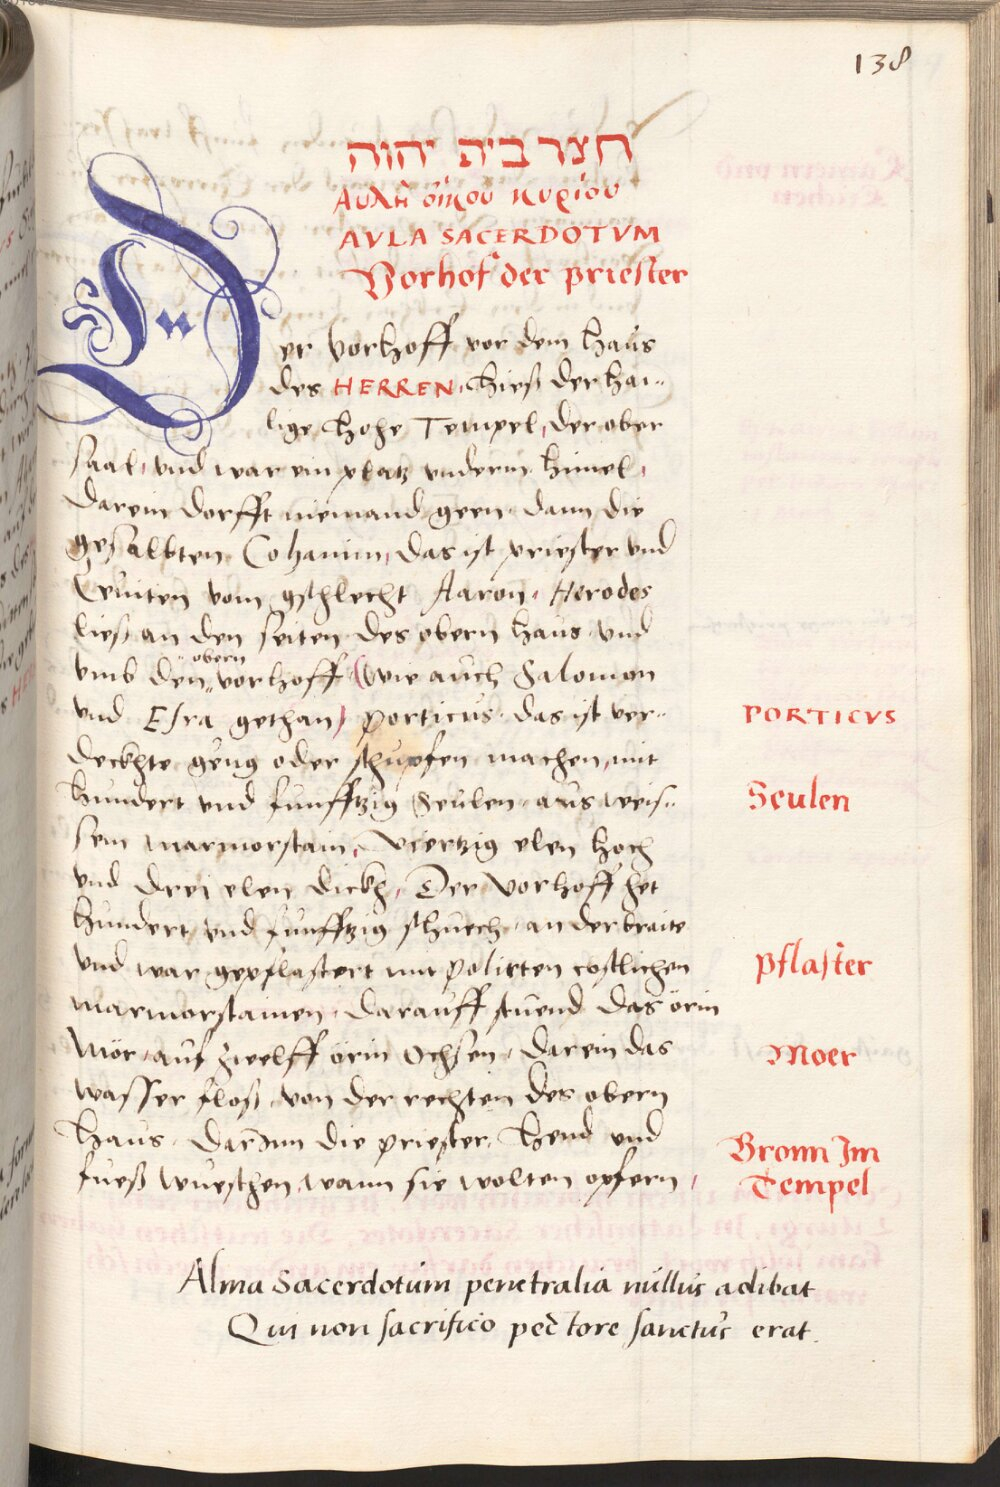 138
חצר בית יהוה
Αυλὴ οἴκου κυρίου
AVLA SACERDOTVM
Vorhof der priester
Der Vorhoff vor dem haus
des HERREN, hieß der hai-
lige hohe Tempel, der ober
saal, vnd war ein platz vnderm himel,
darein dorfft niemand geen dann die
gesalbten Cohanim, das ist priester vnd
Leuiten vom gschlecht Aaron. Herodes
ließ an den seiten des obern haus vnd
vmb den obern vorhoff (wie auch Salomon
vnd Esra gethan) porticus das ist ver-
deckhte geng oder schupfen machen, mit
hundert vnd funfftzig Seulen aus weis-
sem marmorstain, viertzig elen hoch
vnd drei elen dickh, Der Vorhoff het
hundert vnd funfftzig schuech an der braite
vnd war gepflastert mit polirten costlichen
marmorstainen, darauff stuend das örin
Mör auf zwelff örin Ochsen, darein das
wasser floß von der rechten des obern
haus darinn die priester hend vnd
fueß wueschen, wann sie wolten opfern,
PORTICVS
Seulen
pflaster
Moer
Bronn Im
Tempel
Alma Sacerdotum penetralia nullus adibat
Qui non sacrifico pectore sanctus erat.